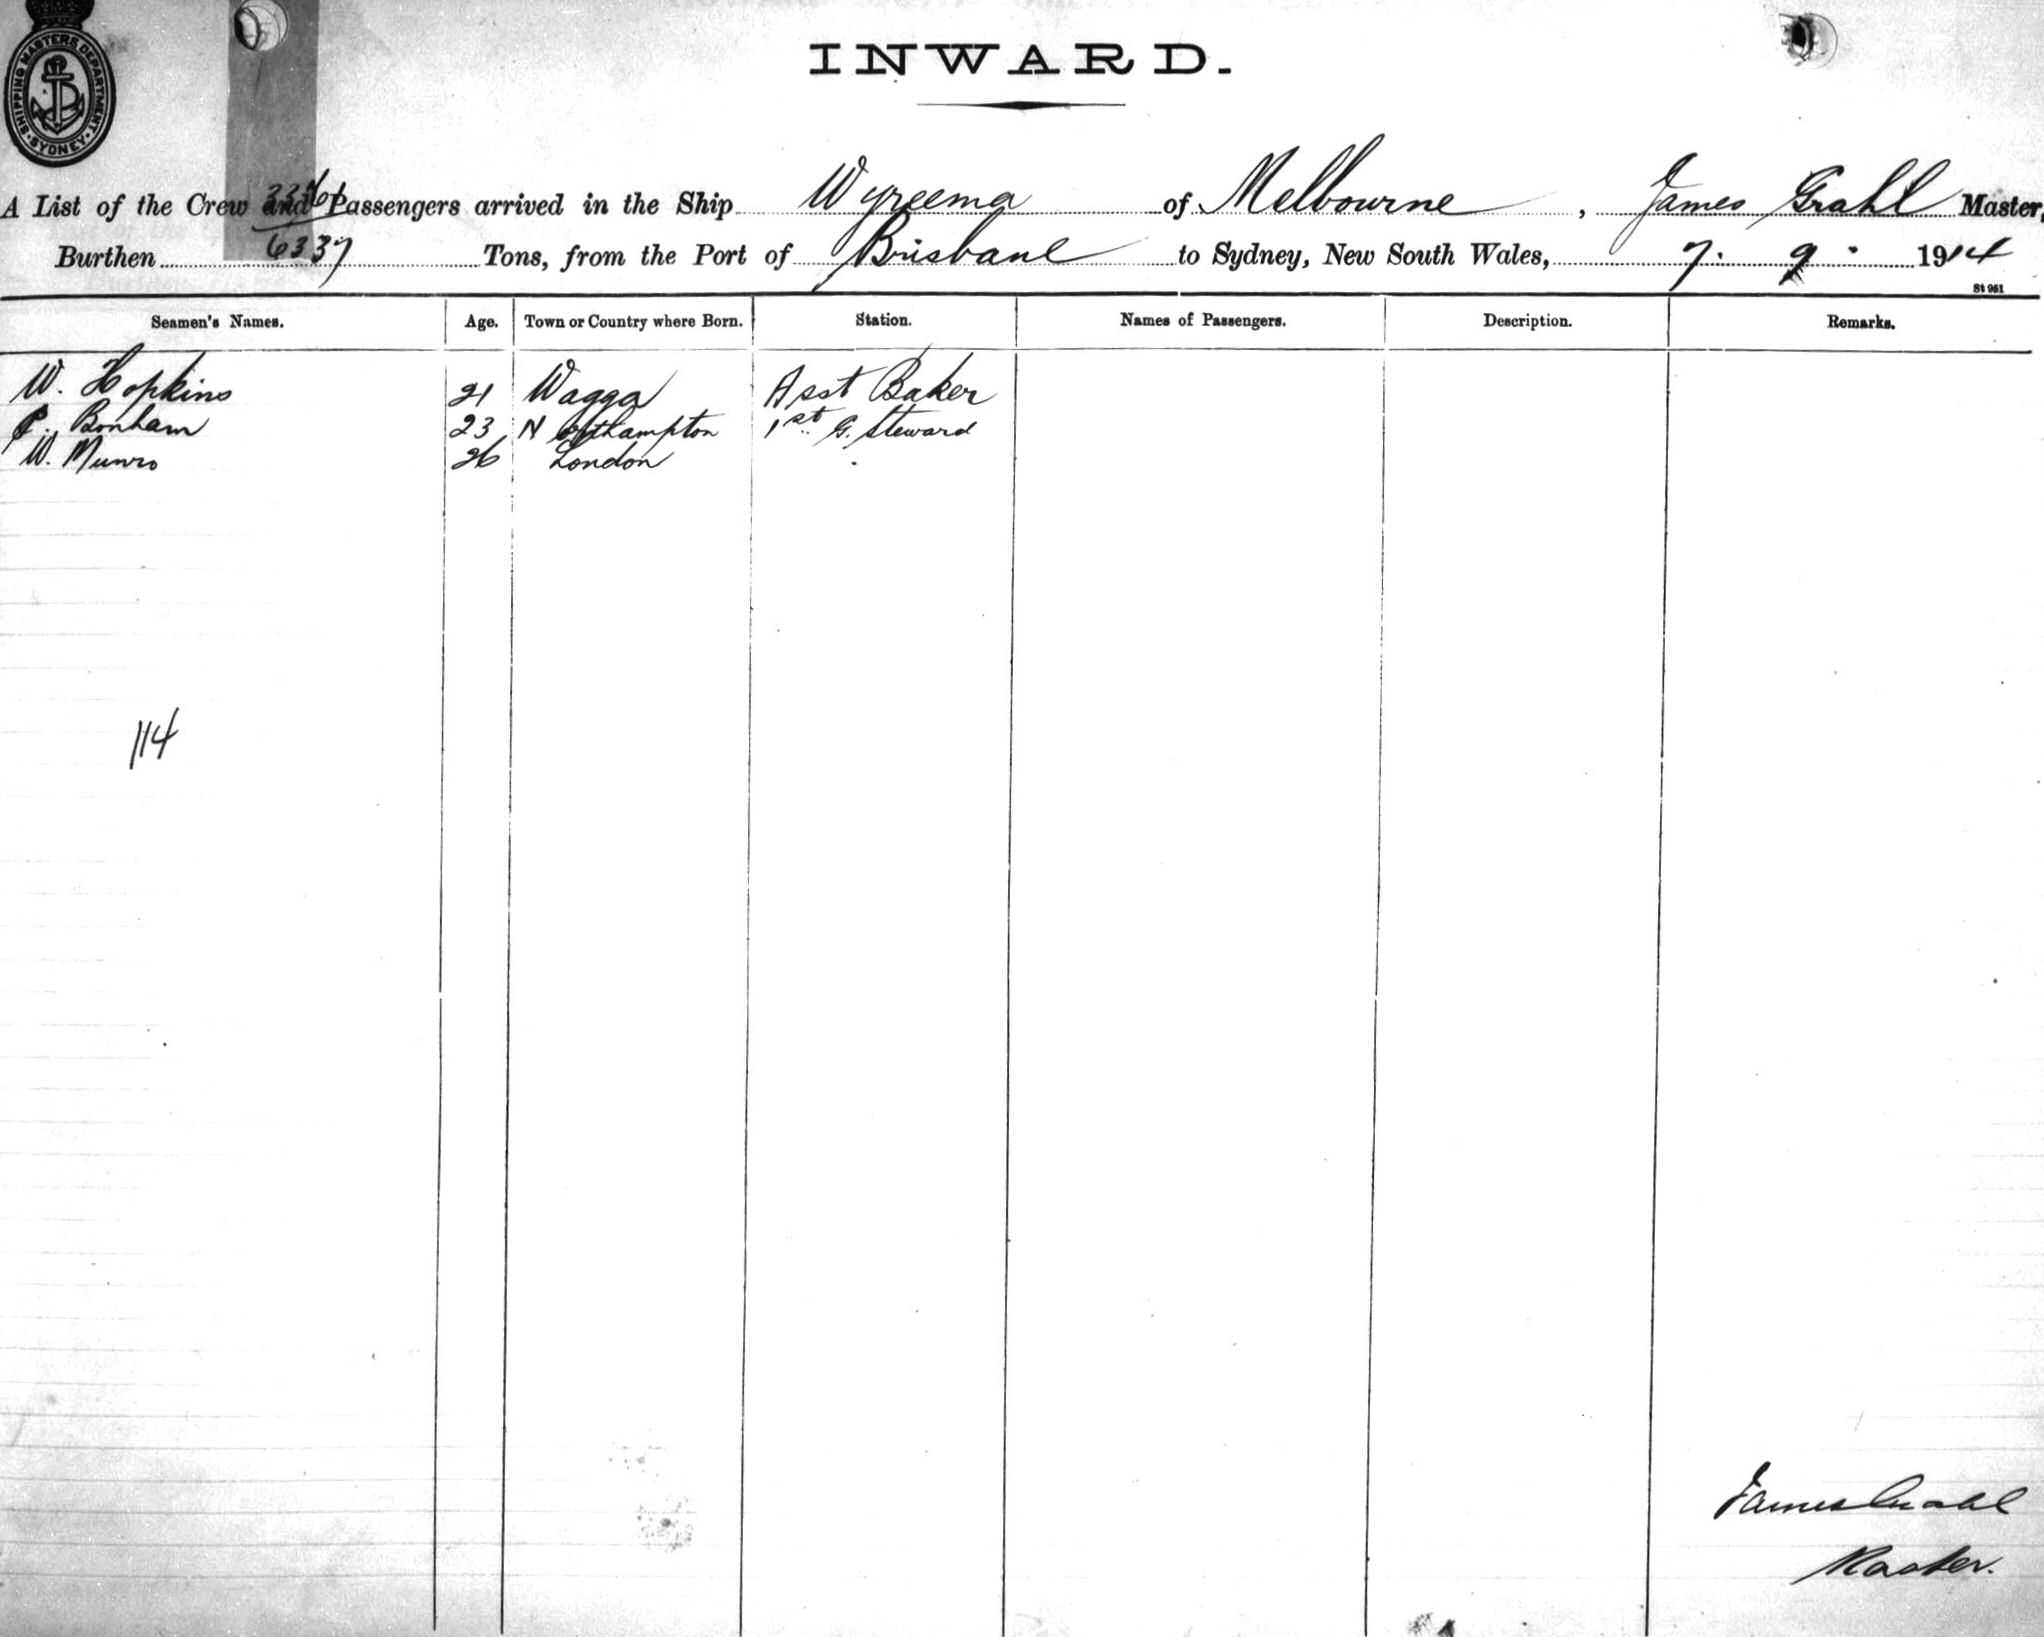 SHIPPING MASTERS DEPARTMENT
SYDNEY
INWARD.
A List of the Crew and Passengers arrived in the Ship Wyreema of Melbourne, James Grahl Master,
Burthen 6337 Tons, from the Port of Brisbane to Sydney, New South Wales, 7. 9. 1914
St 961
Seamen's Names. Age. Town or Country where Born. Station. Names of Passengers. Description. Remarks.
W. Hopkins 21 Wagga Asst Baker
Bonham 23 Northampton 1st G. Steward
W. Munro 26 London
114
James Grahl
Master.